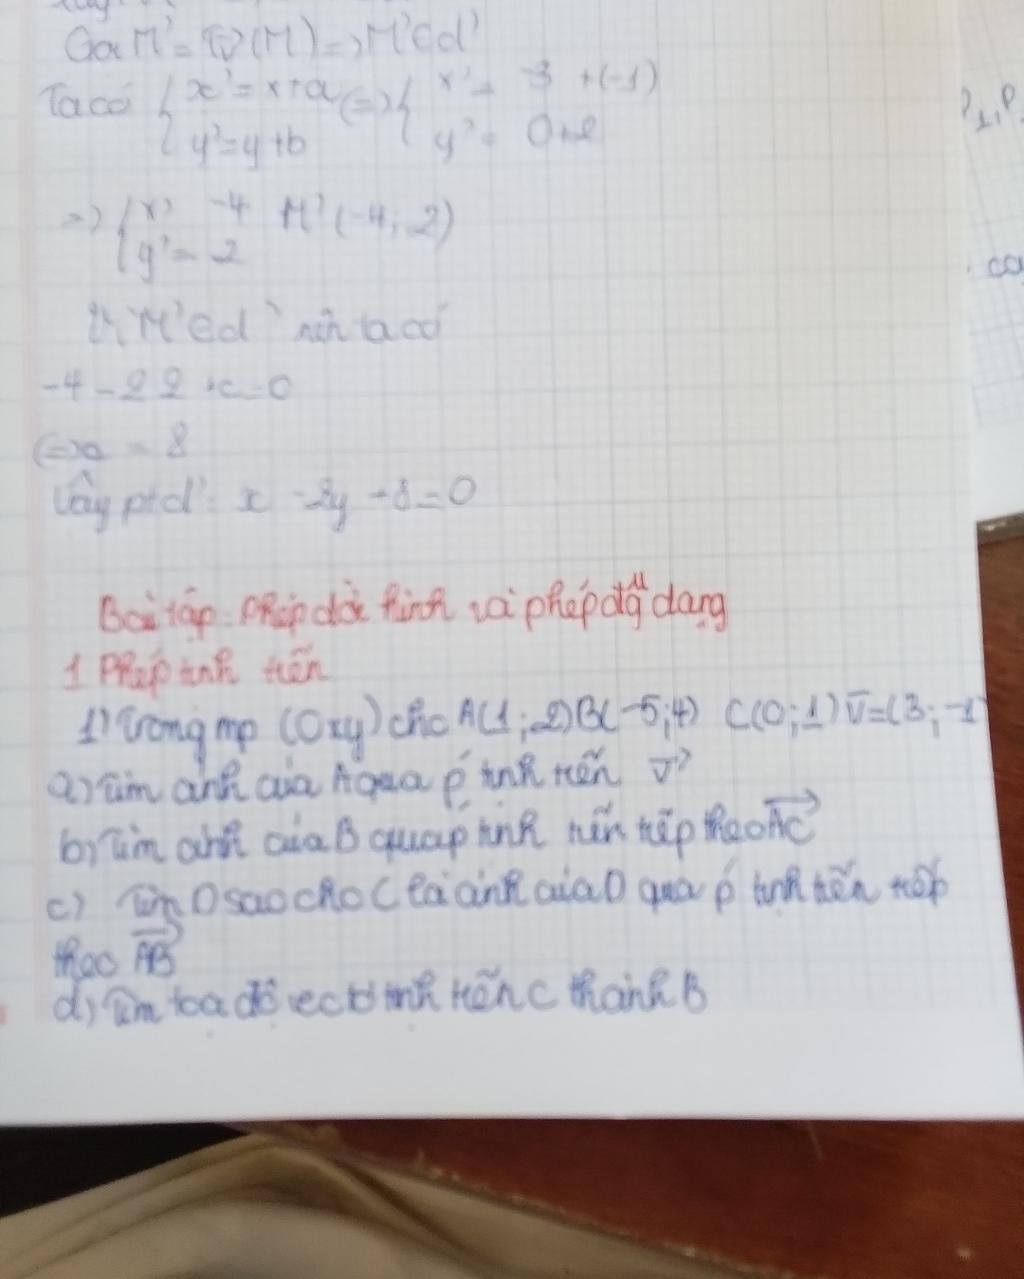 Gọi M' = Tv(M) => M'∈d'
Ta có { x' = x+a (=> { x' = -3 +(-1)
y' = y+b y' = 0+2
=> { x' -4 M' (-4; 2)
y' = 2
Vì M'∈d' nên ta có
-4 - 2 2 +c = 0
= 8
Vậy ptd': x -2y +8 = 0
Bài tập: Phép dời hình và phép đg dạng
1 Phép tịnh tiến
1) Trong mp (Oxy) cho A(1; 2) B(-5; 4) C(0; 1) v = (3; -1
a) Tìm ảnh của A qua p' tịnh tiến v
b) Tìm ảnh của B qua p' tịnh tiến tiếp theo AC
c) Tìm D sao cho C là ảnh của D qua p' tịnh tiến tiếp
theo AB
d) Tìm toạ độ vectơ tịnh tiến C thành B